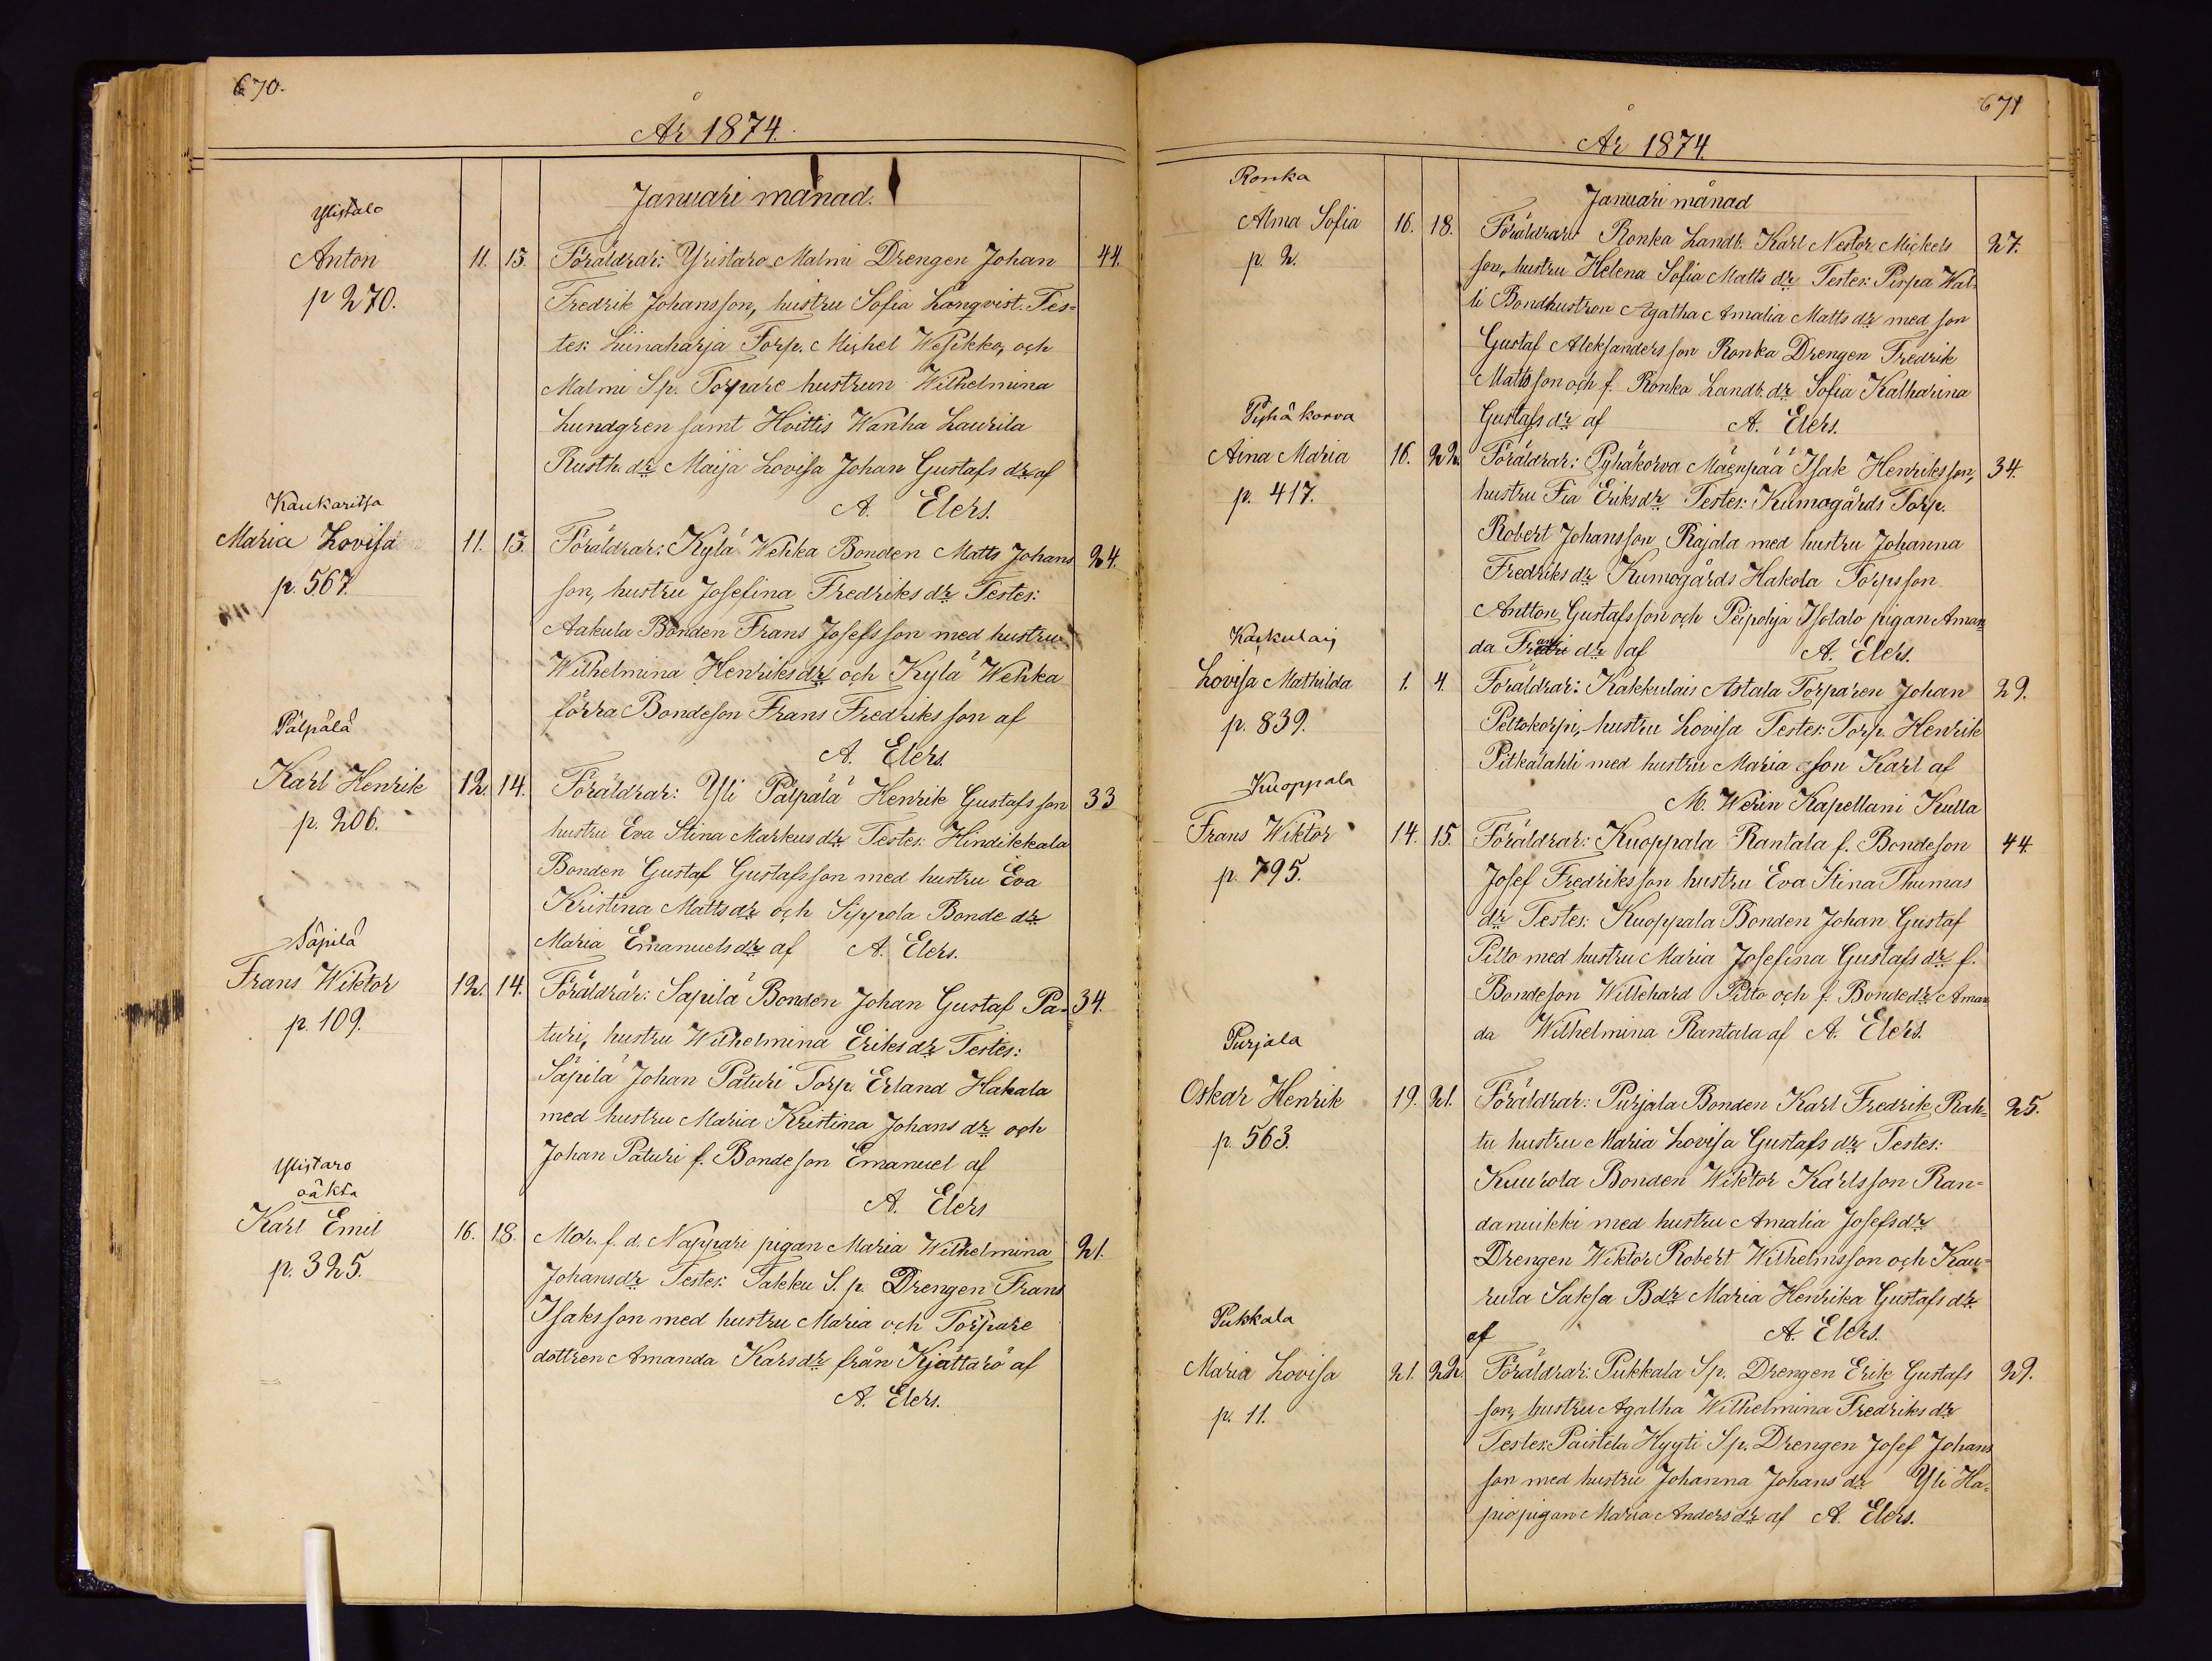 670.
År 1874.
Januari månad.
Ylistalo
Anton
p 270.
11. 13. Föräldrar: Yristaro Malmi Drengen Johan 44.
Fredrik Johansson, hustru Sofia Lönqvist. Tes=
tes: Liinaharja Torp. Michel Wesikko, och
Malmi Sp. Torpare hustrun Wilhelmina
Lundgren samt Hvittis Wanha Laurila
Rusth. dr Maija Lovisa Johan Gustafs dr af
A. Elers.
Kaukaritsa
Maria Lovisa
p. 567.
11. 13. Föräldrar: Kylä Wehka Bonden Matts Johans 24.
son, hustru Josefina Fredriks dr Testes:
Aakula Bonden Frans Josefsson med hustru
Wilhelmina Henriks dr och Kylä Wehka
förra Bondeson Frans Fredriksson af
A. Elers.
Pälpälä
Karl Henrik
p. 206.
12. 14. Föräldrar: Yli Pälpälä Henrik Gustafsson 33
hustru Eva Stina Markus dr Testes: Hindikkala
Bonden Gustaf Gustafsson med hustru Eva
Kristina Matts dr och Sippola Bonde dr
Maria Emanuels dr af A. Elers.
Säpilä
Frans Wiktor
p. 109.
12. 14. Föräldrar: Säpilä Bonden Johan Gustaf Pa= 34.
turi, hustru Wilhelmina Eriks dr Testes:
Säpilä Johan Paturi Torp. Erland Hakala
med hustru Maria Kristina Johans dr och
Johan Paturi f. Bondeson Emanuel af
A. Elers
Ylistaro
oäkta
Karl Emil
p. 325.
16. 18. Mor. f. d. Nappari pigan Maria Wilhelmina 21.
Johansdr Testes: Takku S. p. Drengen Frans
Isaksson med hustru Maria och Torpare
dottren Amanda Karsdr från Kjättärö af
A. Elers.
671
År 1874.
Januari månad
Ronka
Alma Sofia
p. 2.
16. 18. Föräldrar: Ronka Landb. Karl Nestor Mickels 27.
son, hustru Helena Sofia Matts dr Testes: Pispa Wal=
li Bondhustron Agatha Amalia Matts dr med son
Gustaf Aleksandersson Ronka Drengen Fredrik
Mattsson och f. Ronka Landb. dr Sofia Katharina
Gustafs dr af A. Elers.
Pyhäkorva
Aina Maria
p. 417.
16. 22. Föräldrar: Pyhäkorva Mäenpää Isak Henriksson, 34.
hustru Fia Eriksdr Testes: Kumogårds Torp.
Robert Johansson Rajala med hustru Johanna
Fredriks dr Kumogårds Hakola Torpsson
Antton Gustafsson och Peipohja Isotalo pigan Aman=
da Frans dr af A. Elers.
Kackulais
Lovisa Mathilda
p. 839.
1. 4. Föräldrar: Kakkulais Astala Torparen Johan 29.
Peltokorpi, hustru Lovisa Testes: Torp. Henrik
Pitkälahti med hustru Maria o son Karl af
M. Werin Kapellani Kulla
Kuoppala
Frans Wiktor
p. 795.
14. 15. Föräldrar: Kuoppala Rantala f. Bondeson 44.
Josef Fredriksson hustru Eva Stina Thumas
dr Testes: Kuoppala Bonden Johan Gustaf
Pilto med hustru Maria Josefina Gustafs dr f.
Bondeson Willehard Pilto och f. Bondedr Aman
da Wilhelmina Rantala af A. Elers.
Purjala
Oskar Henrik
p. 563.
19. 21. Föräldrar: Purjala Bonden Karl Fredrik Rah= 25.
tu hustru Maria Lovisa Gustafs dr Testes:
Kuurola Bonden Wiktor Karlsson Ran=
danuikki med hustru Amalia Josefsdr
Drengen Wiktor Robert Wilhelmsson och Kau=
rula Saksa Bdr Maria Henrika Gustafs dr
af A. Elers.
Pukkala
Maria Lovisa
p. 11.
21. 22. Föräldrar: Pukkala Sp. Drengen Erik Gustafs 29.
son, hustru Agatha Wilhelmina Fredriks dr
Testes: Paistila Hyyti Sp. Drengen Josef Johans
son med hustru Johanna Johans dr Yli Ha=
pio pigan Maria Anders dr af A. Elers.